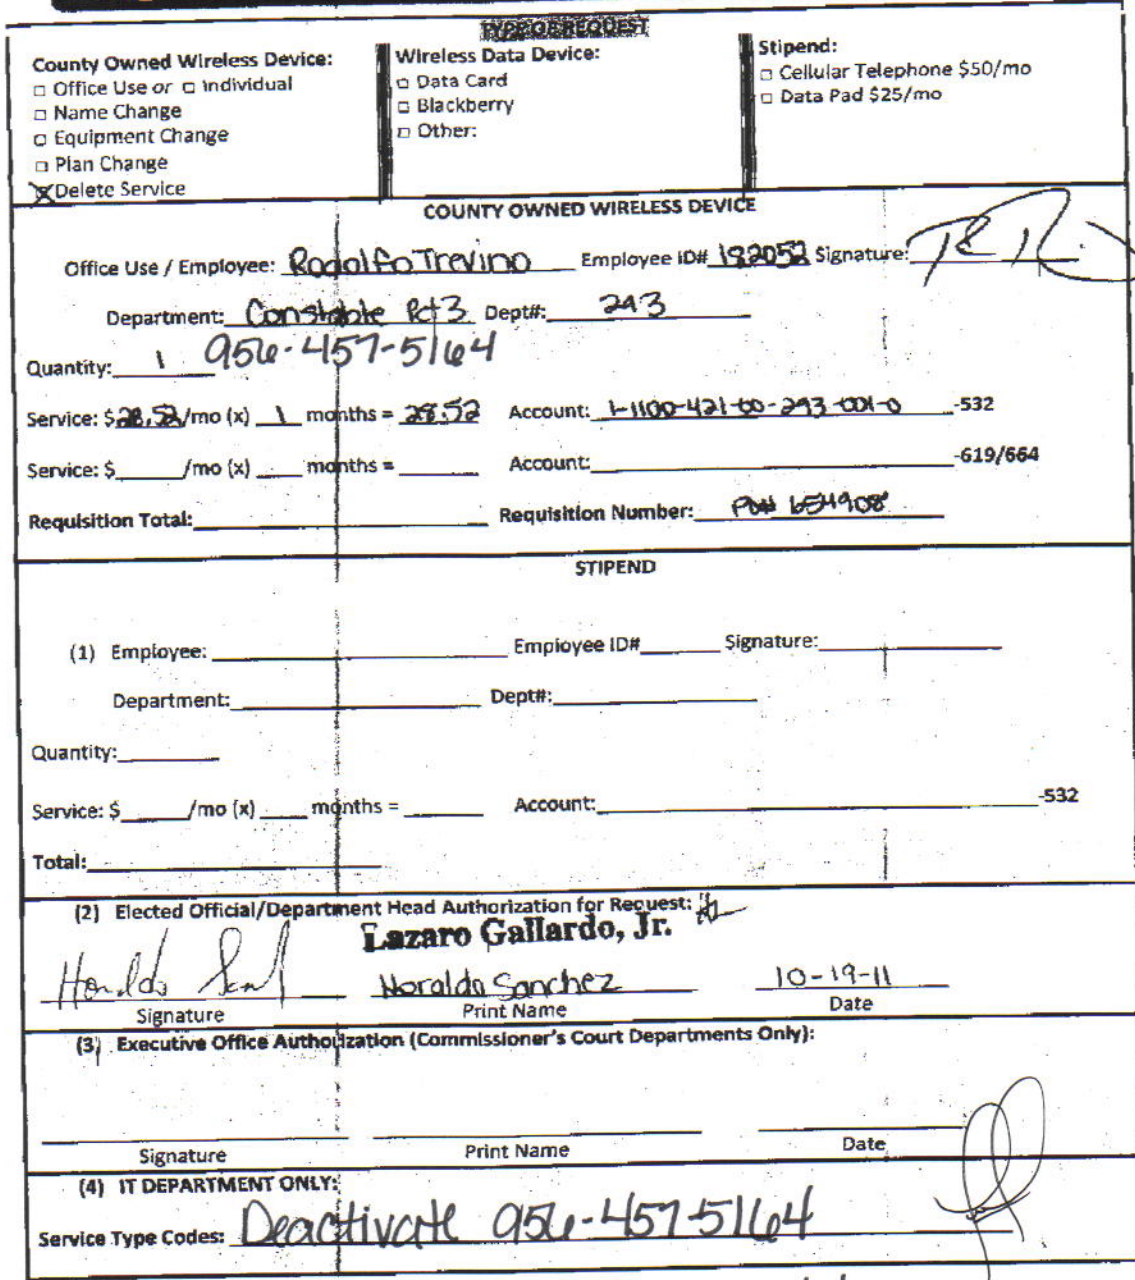 TYPE OF REQUEST
County Owned Wireless Device:
□ Office Use or □ Individual
□ Name Change
□ Equipment Change
□ Plan Change
☒ Delete Service
Wireless Data Device:
□ Data Card
□ Blackberry
□ Other:
Stipend:
□ Cellular Telephone $50/mo
□ Data Pad $25/mo
COUNTY OWNED WIRELESS DEVICE
Office Use / Employee: Rodolfo Trevino Employee ID# 182052 Signature:
Department: Constable Pct 3 Dept#: 293
Quantity: 1 956-457-5164
Service: $28.52/mo (x) 1 months = 28.52 Account: 1-1100-421-00-293-001-0 -532
Service: $ /mo (x) months = Account: -619/664
Requisition Total: Requisition Number: PO# 654908
STIPEND
(1) Employee: Employee ID# Signature:
Department: Dept#:
Quantity:
Service: $ /mo (x) months = Account: -532
Total:
(2) Elected Official/Department Head Authorization for Request:
Lazaro Gallardo, Jr.
Noralda Sanchez 10-19-11
Signature Print Name Date
(3) Executive Office Authorization (Commissioner's Court Departments Only):
Signature Print Name Date
(4) IT DEPARTMENT ONLY:
Service Type Codes: Deactivate 956-457-5164